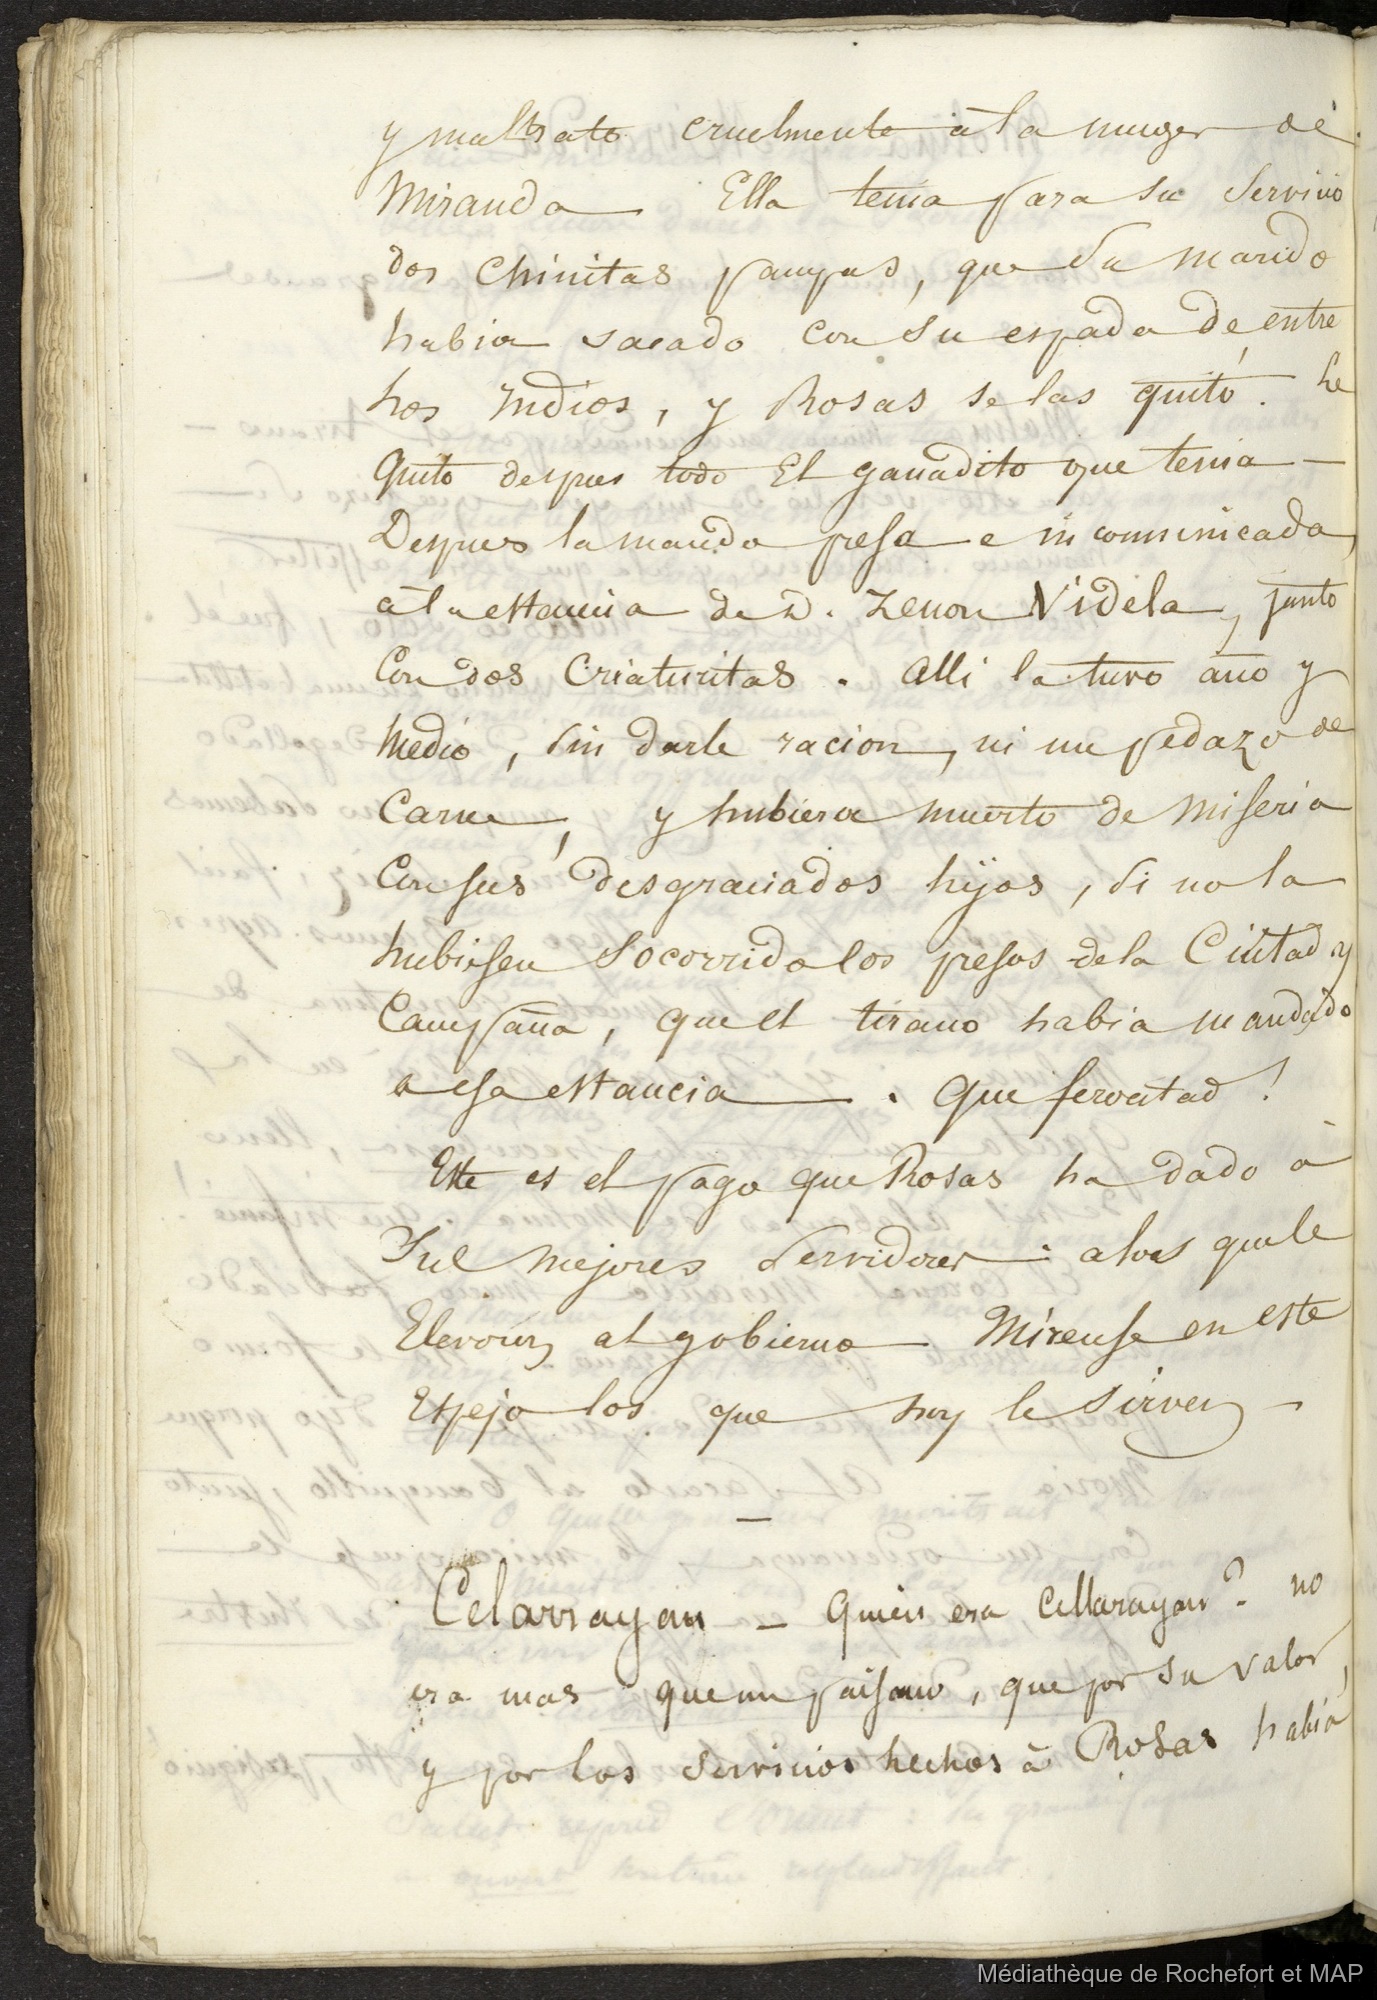 y maltrato cruelmente à la muger de
Miranda Ella tenia para su Servicio
dos Chinitas pampas, que Su marido
habia sacado con su espada de entre
hos Indios, y Rosas se las quitó. he
Quito despues todo El ganadito que tenia —
Despues la mando presa e incomunicada
à la estancia de D. Zenon Videla, junto
Con dos Criaturitas. Alli la tuvo año y
Medio, Sin darle racion, ni un pedazo de
Carne, y hubiera muerto de Miseria
Con sus desgraciados hijos, Si no la
hubiesen Socorrido los presos de la Ciutad y
Campaña, que el tirano habia mandado
a esa estancia — . Que
Este es el pago que Rosas ha dado à
Sus mejores Servidores : a los que le
Elevaron al gobierno — Mirense en este
Espejo los que hoy le Sirven —
—
Celarrayan — Quien era Cellarayan? no
era mas que un paisano, que por su valor,
y por los servicios hechos à Rosas habia
Médiathèque de Rochefort et MAP